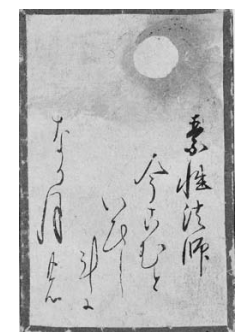 素性法師
今こむと
いひし
斗に
なか月の